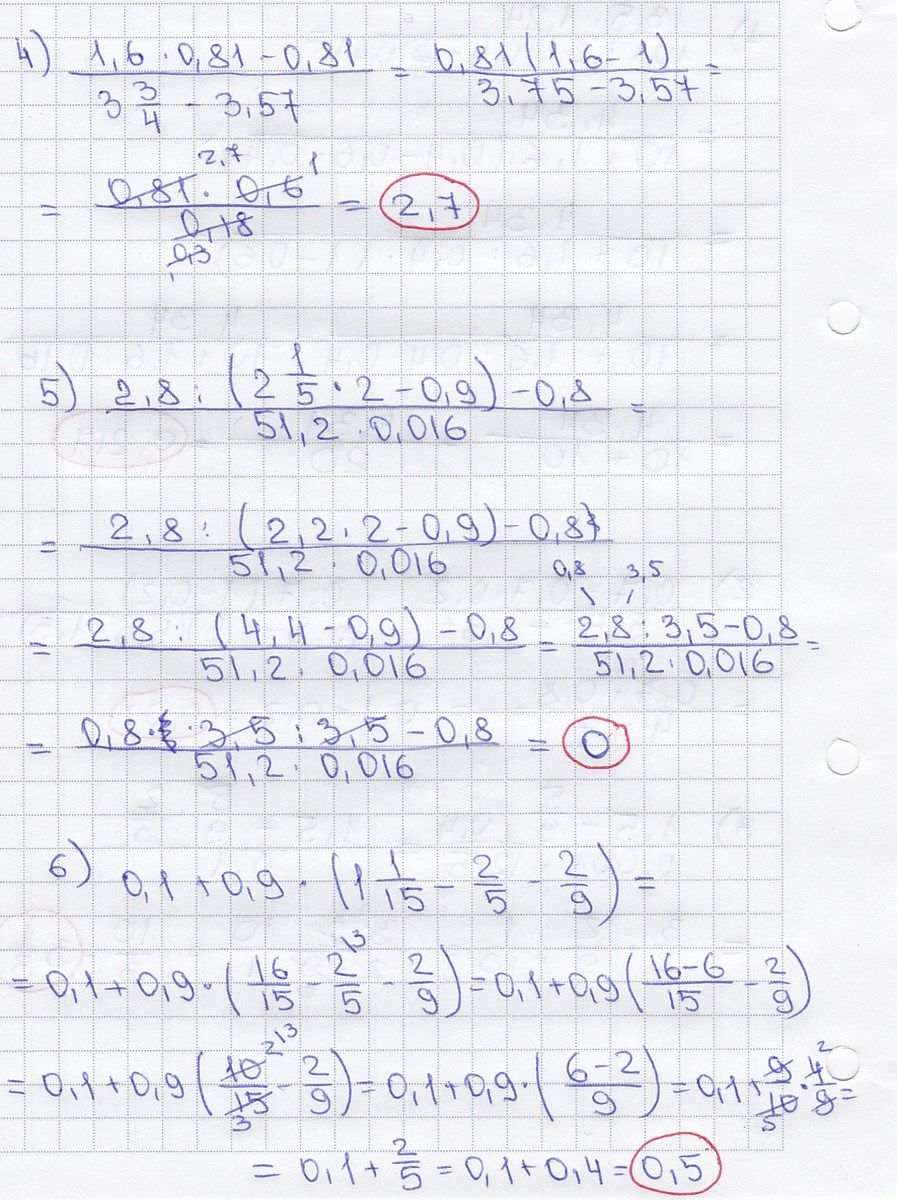 4) (1,6 · 0,81 - 0,81)/(3 3/4 - 3,57) = 0,81(1,6 - 1)/(3,75 - 3,57) =
= (0,81 · 0,6)/0,18 = 2,7
2,7 1
0,3
1
5) (2,8 : (2 1/5 · 2 - 0,9) - 0,8)/(51,2 · 0,016) =
= (2,8 : (2,2 · 2 - 0,9) - 0,8)/(51,2 · 0,016)
0,8 3,5
= (2,8 : (4,4 - 0,9) - 0,8)/(51,2 · 0,016) = (2,8 : 3,5 - 0,8)/(51,2 · 0,016) =
= (0,8 · 3,5 : 3,5 - 0,8)/(51,2 · 0,016) = 0
6) 0,1 + 0,9 · (1 1/15 - 2/5 - 2/9) =
= 0,1 + 0,9 · (16/15 - 2\3/5 - 2/9) = 0,1 + 0,9 (16-6/15 - 2/9)
= 0,1 + 0,9 (10 2\3/15 3 - 2/9) = 0,1 + 0,9 · (6-2/9) = 0,1 + 9/10 5 · 4 2/9 =
= 0,1 + 2/5 = 0,1 + 0,4 = 0,5